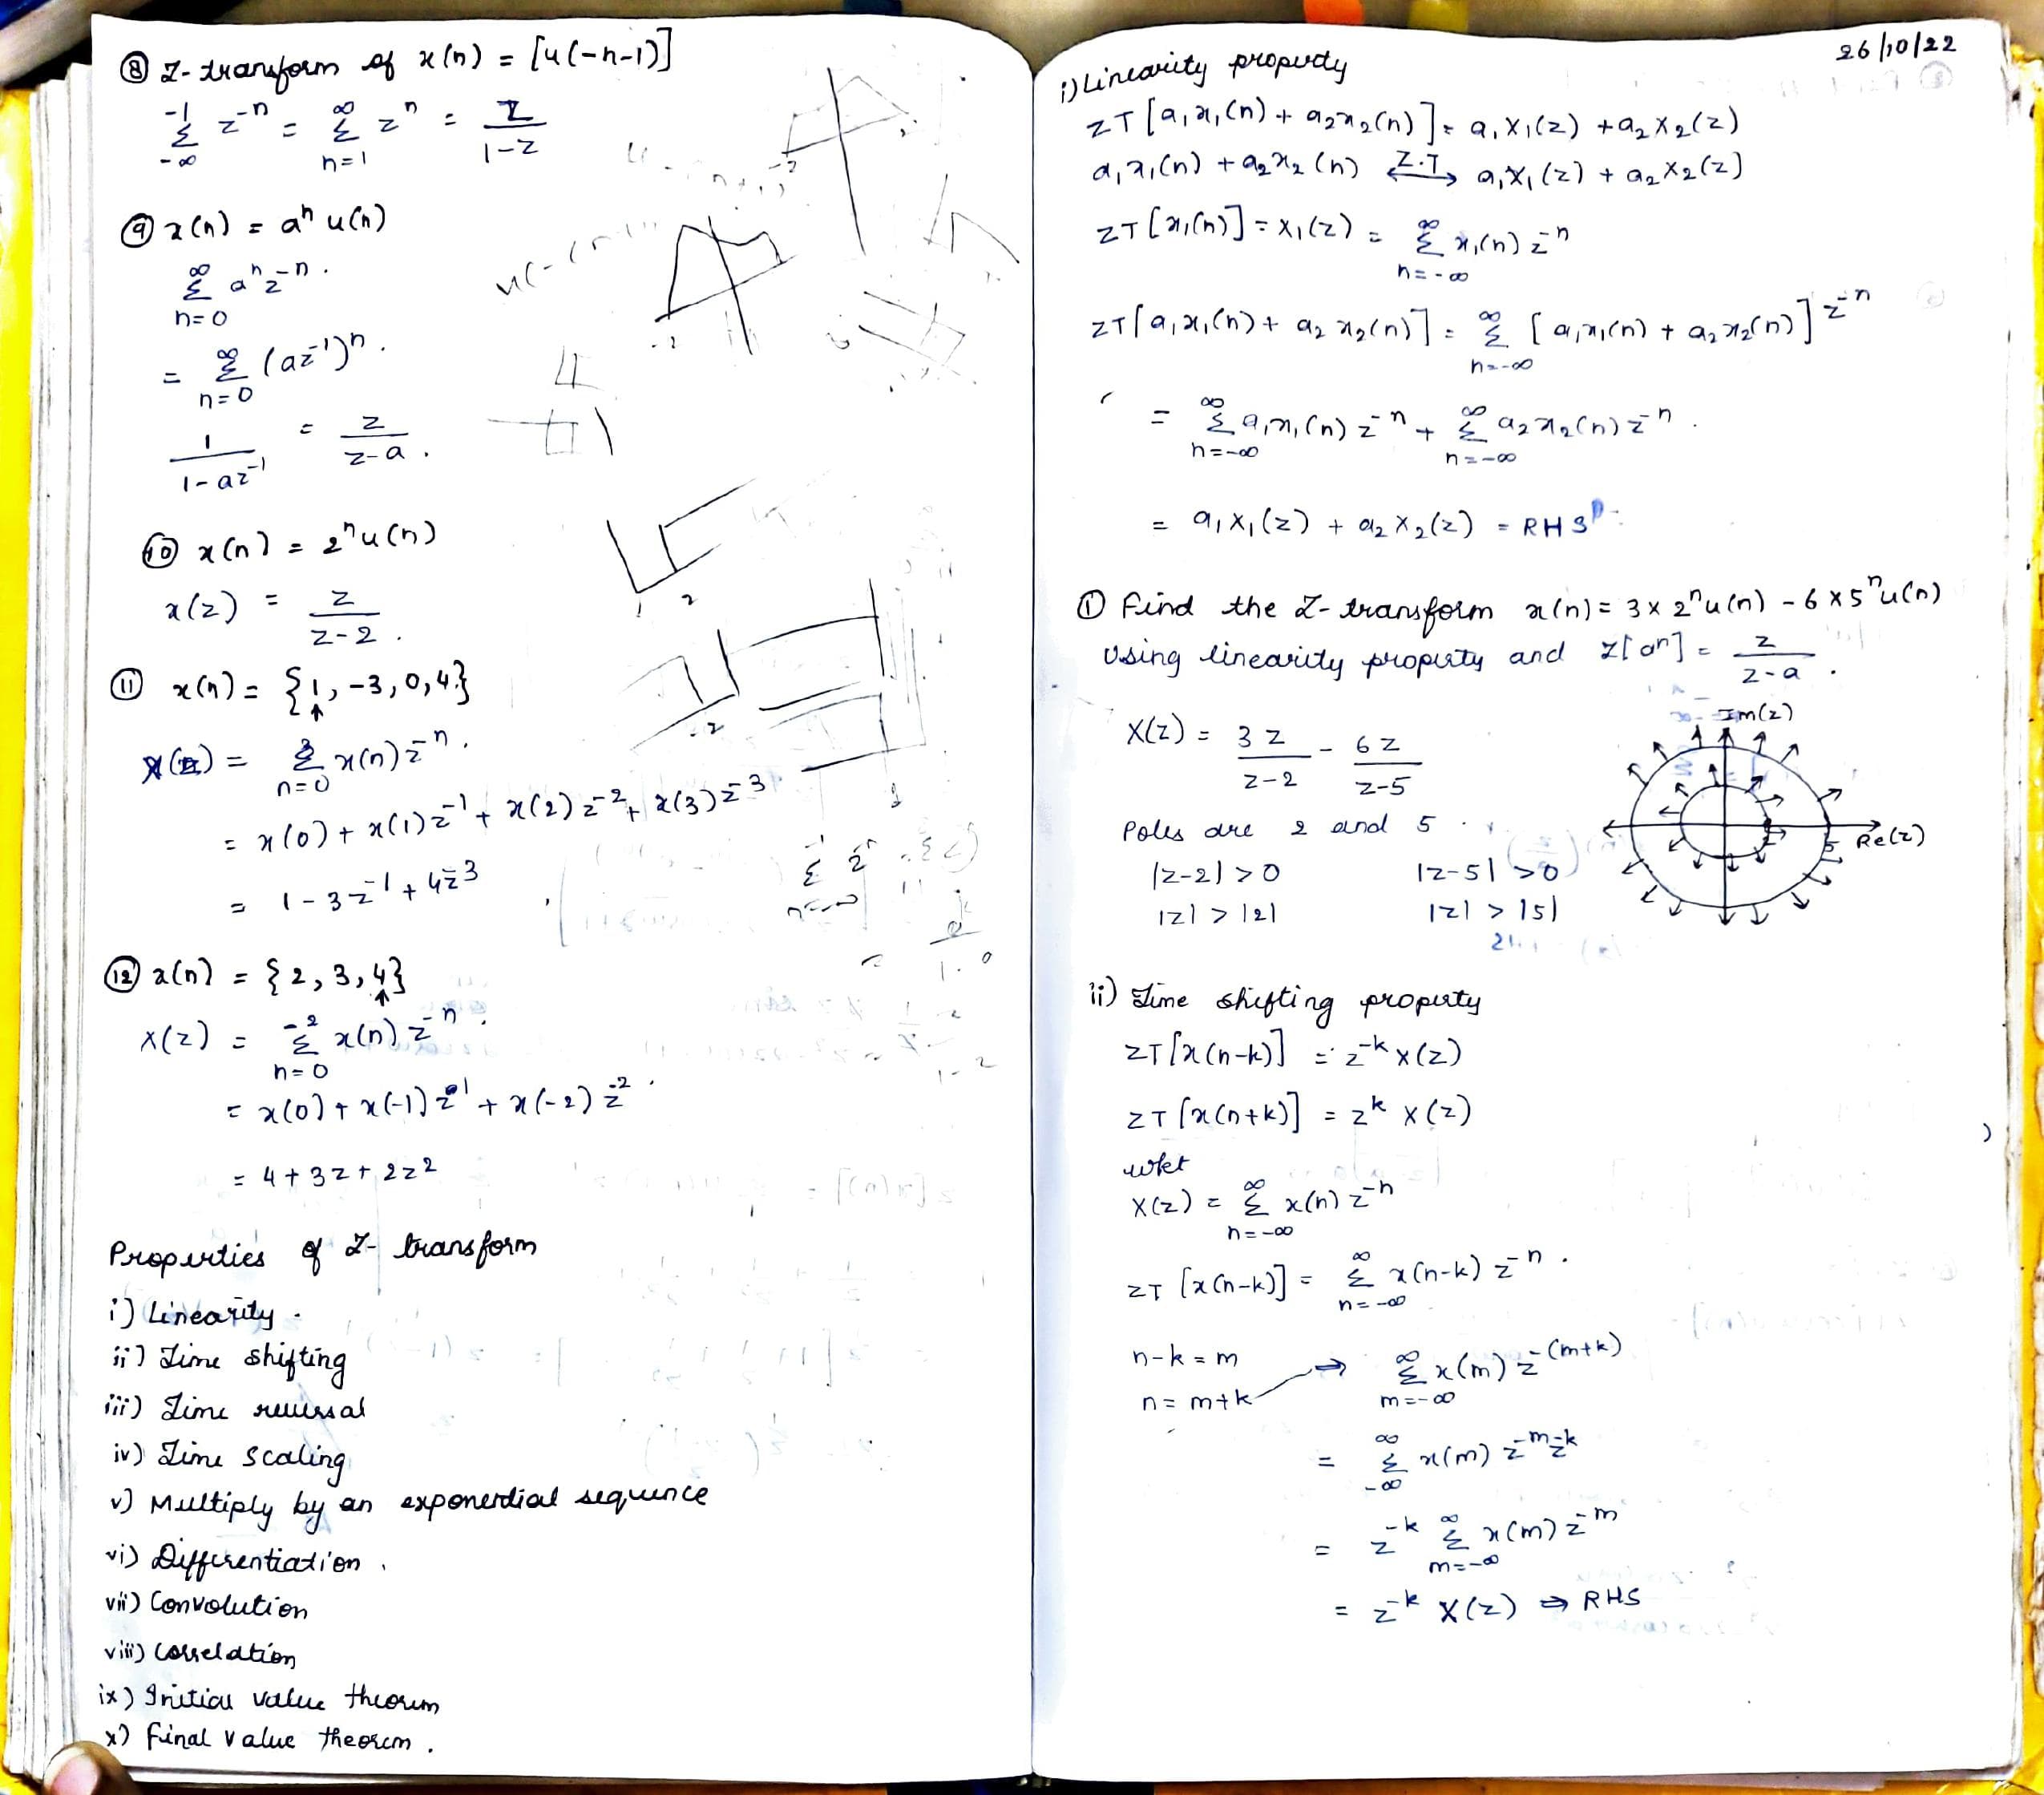 ⑧ Z-transform of x(n) = [u(-n-1)]
-1 Σ -∞ z^-n = ∞ Σ n=1 z^n = z/(1-z)
⑨ x(n) = a^n u(n)
∞ Σ n=0 a^n z^-n .
= ∞ Σ n=0 (az^-1)^n .
1/(1-az^-1) = z/(z-a) .
⑩ x(n) = 2^n u(n)
x(z) = z/(z-2) .
⑪ x(n) = {1, -3, 0, 4}
↑
X(z) = 3 Σ n=0 x(n) z^-n .
= x(0) + x(1) z^-1 + x(2) z^-2 + x(3) z^-3
= 1 - 3z^-1 + 4z^-3
⑫ x(n) = {2, 3, 4}
↑
X(z) = -2 Σ n=0 x(n) z^-n .
= x(0) + x(-1) z^1 + x(-2) z^-2 .
= 4 + 3z + 2z^2
Properties of Z-transform
i) Linearity .
ii) Time shifting
iii) Time reversal
iv) Time scaling
v) Multiply by an exponential sequence
vi) Differentiation .
vii) Convolution
viii) Correlation
ix) Initial value theorem
x) final value theorem .
26/10/22
i) Linearity property
ZT[a₁x₁(n) + a₂x₂(n)] = a₁X₁(z) + a₂X₂(z)
a₁x₁(n) + a₂x₂(n) Z.T ⟷ a₁X₁(z) + a₂X₂(z)
ZT[x₁(n)] = X₁(z) = ∞ Σ n=-∞ x₁(n) z^-n
ZT[a₁x₁(n) + a₂x₂(n)] = ∞ Σ n=-∞ [a₁x₁(n) + a₂x₂(n)] z^-n
= ∞ Σ n=-∞ a₁x₁(n) z^-n + ∞ Σ n=-∞ a₂x₂(n) z^-n .
= a₁X₁(z) + a₂X₂(z) = RHS
① Find the Z-transform x(n) = 3 x 2^n u(n) - 6 x 5^n u(n)
Using linearity property and Z[a^n] = z/(z-a) .
X(z) = 3z/(z-2) - 6z/(z-5)
Poles are 2 and 5 .
|z-2| > 0 |z-5| > 0
|z| > |2| |z| > |5|
Im(z)
Re(z)
2
5
ii) Time shifting property
ZT[x(n-k)] = z^-k X(z)
ZT[x(n+k)] = z^k X(z)
wkt
X(z) = ∞ Σ n=-∞ x(n) z^-n
ZT[x(n-k)] = ∞ Σ n=-∞ x(n-k) z^-n .
n-k = m
n = m+k ⇒ ∞ Σ m=-∞ x(m) z^-(m+k)
= ∞ Σ -∞ x(m) z^-m z^-k
= z^-k ∞ Σ m=-∞ x(m) z^-m
= z^-k X(z) ⇒ RHS